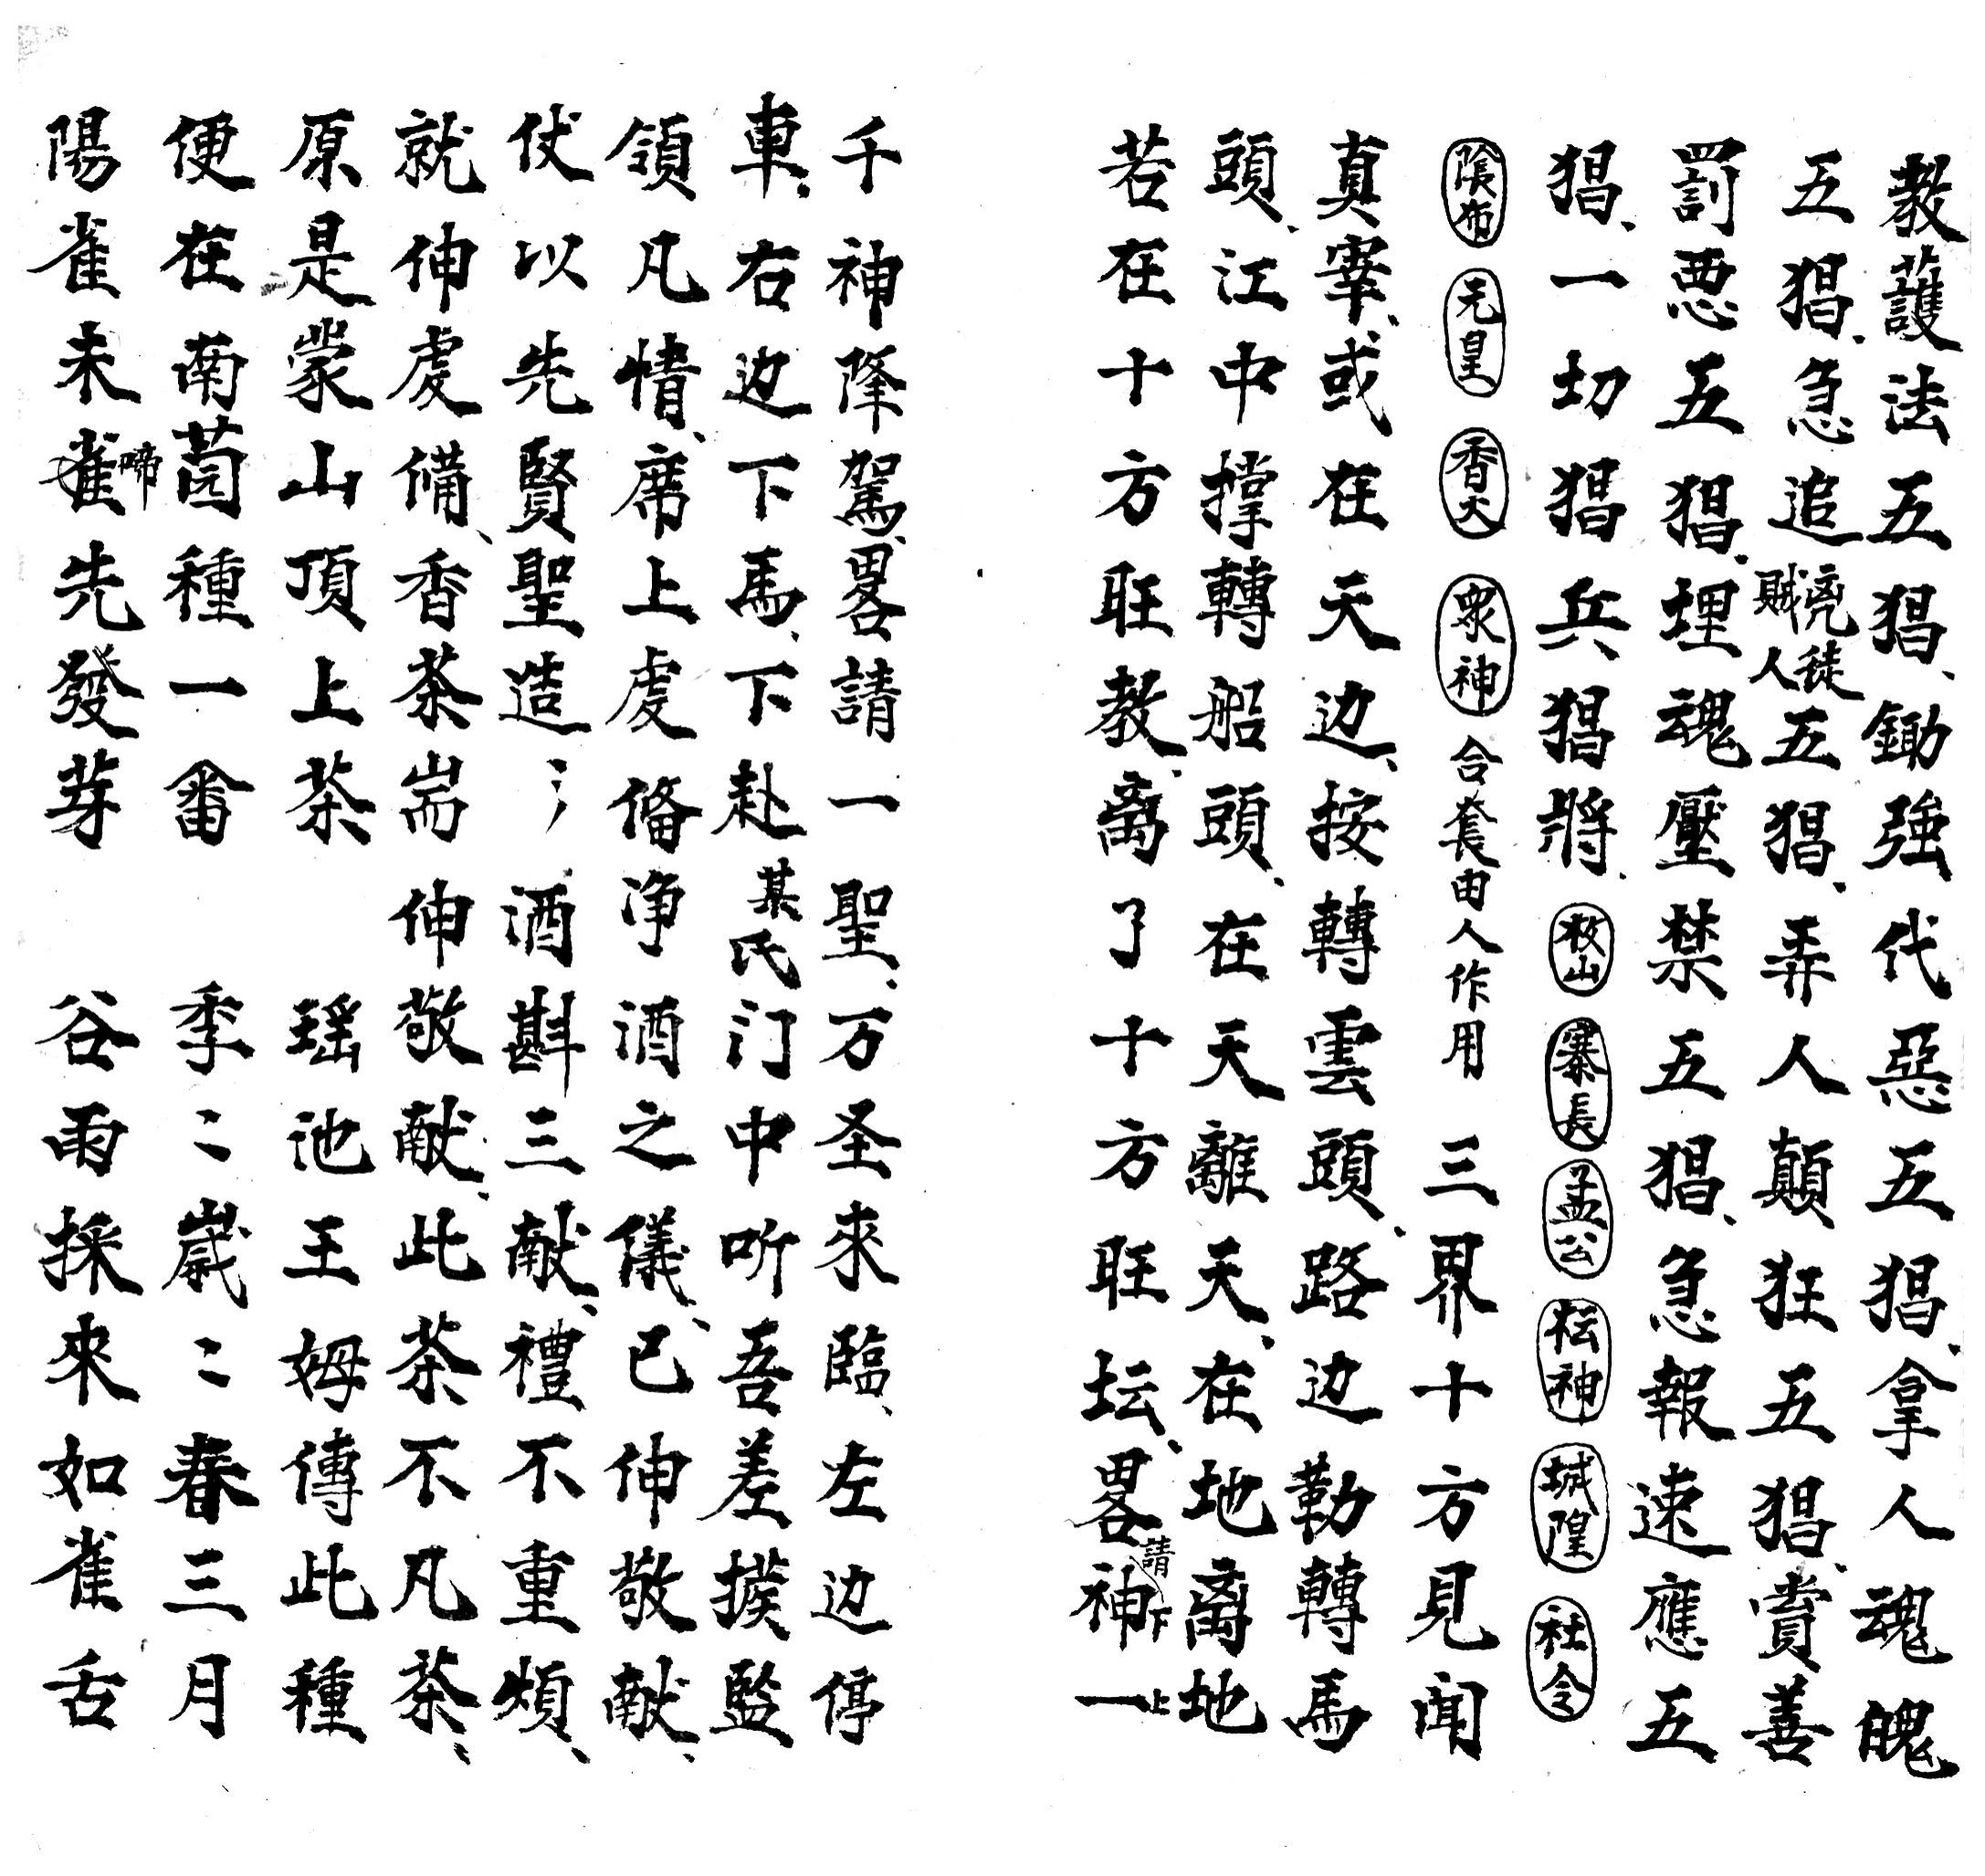 教護法五猖、鋤強代惡五猖、拿人魂魄
五猖、急追兇徒賊人五猖、弄人顛狂五猖、賞善
罰悪五猖、埋魂壓禁五猖、急報速應五
猖、一切猖兵猖將、敇山 寨長 孟公 枟神 城隍 社令
陰佈 元皇 香火 眾神 合套由人作用 三界十方見聞
真宰、或在天边、按轉雲頭、路边勒轉馬
頭、江中撑轉船頭、在天離天、在地离地
若在十方旺教、离了十方旺坛、畧請下神一上
千神降駕、畧請一聖、万圣來臨、左边停
車、右边下馬、下赴某氏门中听吾差撥監
領凡情、席上虔俻净酒之儀、已伸敬献、
伏以先賢聖造〻酒斟三献、禮不重煩、
就伸虔備、香茶耑伸敬献、此茶不凡茶、
原是蒙山頂上茶 瑶池王姆傳此種
便在南园種一畨 季〻歲〻春三月
陽雀未啼雀先發芽 谷雨採來如雀舌